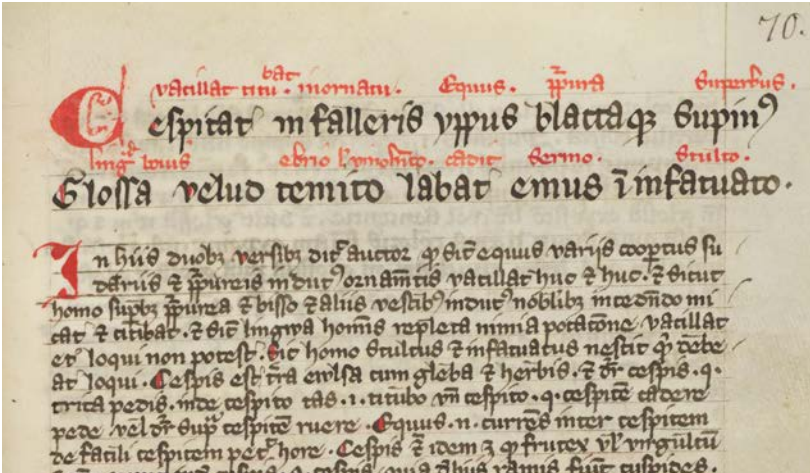 70.
bat
vacillat titu. in ornatu. Equus. ppura Superbus.
Cespitat in falleris yppus blattaqꝫ Supinꝰ
lingua ebrio cadit Sermo. Stulto.
Glossa velud temito labat emus ī infatuato.
In hiis duobꝫ versibꝫ dicit auctor ꝙ sic equus varijs coopertus su
dariis ⁊ ppureis indutꝰ ornamētis vacillat huc ⁊ huc. ⁊ Sicut
homo supbꝫ ppurea ⁊ bisso ⁊ aliis vestibꝰ indutꝰ nobilibꝫ incedēdo mi
cat ⁊ titubat. ⁊ sic lingwa hominis repleta nimia potacōne vacillat
et loqui non potest. Sic homo Stultus ⁊ infatuatus nescit qd debe
at loqui. Cespis est tra euulsa cum gleba ⁊ herbis. ⁊ dr cespis. q.
trita pedis. inde cespito tas. i. titubo vn cespito. q. cespitē cadere
pede vel dr supra cespitem ruere. Equus. n. currēs inter cespitem
de facili cespitem hore. Cespis ē idem ꝙ frutex vl virgultū